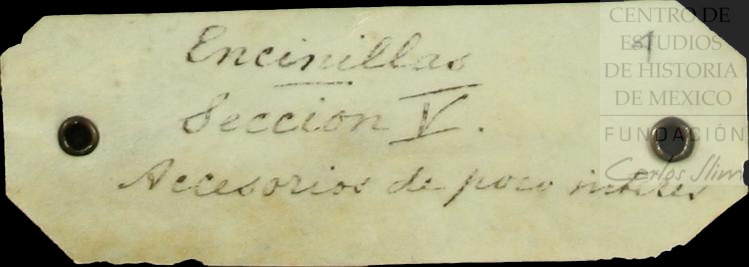 Encinillas
Sección V.
Accesorios de poco interes
CENTRO DE
ESTUDIOS
DE HISTORIA
DE MEXICO
FUNDACIÓN
Carlos Slim